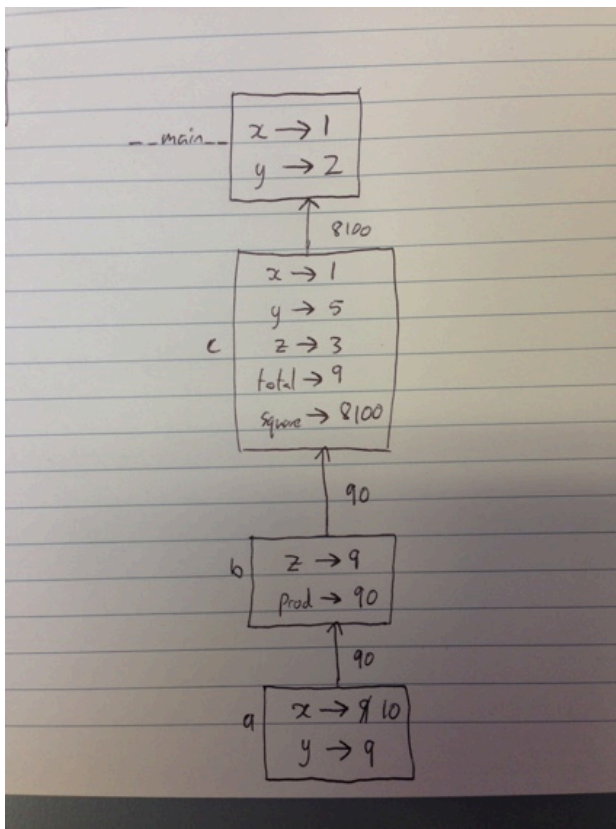 __main__
x → 1
y → 2
8100
c
x → 1
y → 5
z → 3
total → 9
square → 8100
90
b
z → 9
prod → 90
90
a
x → 9 10
y → 9